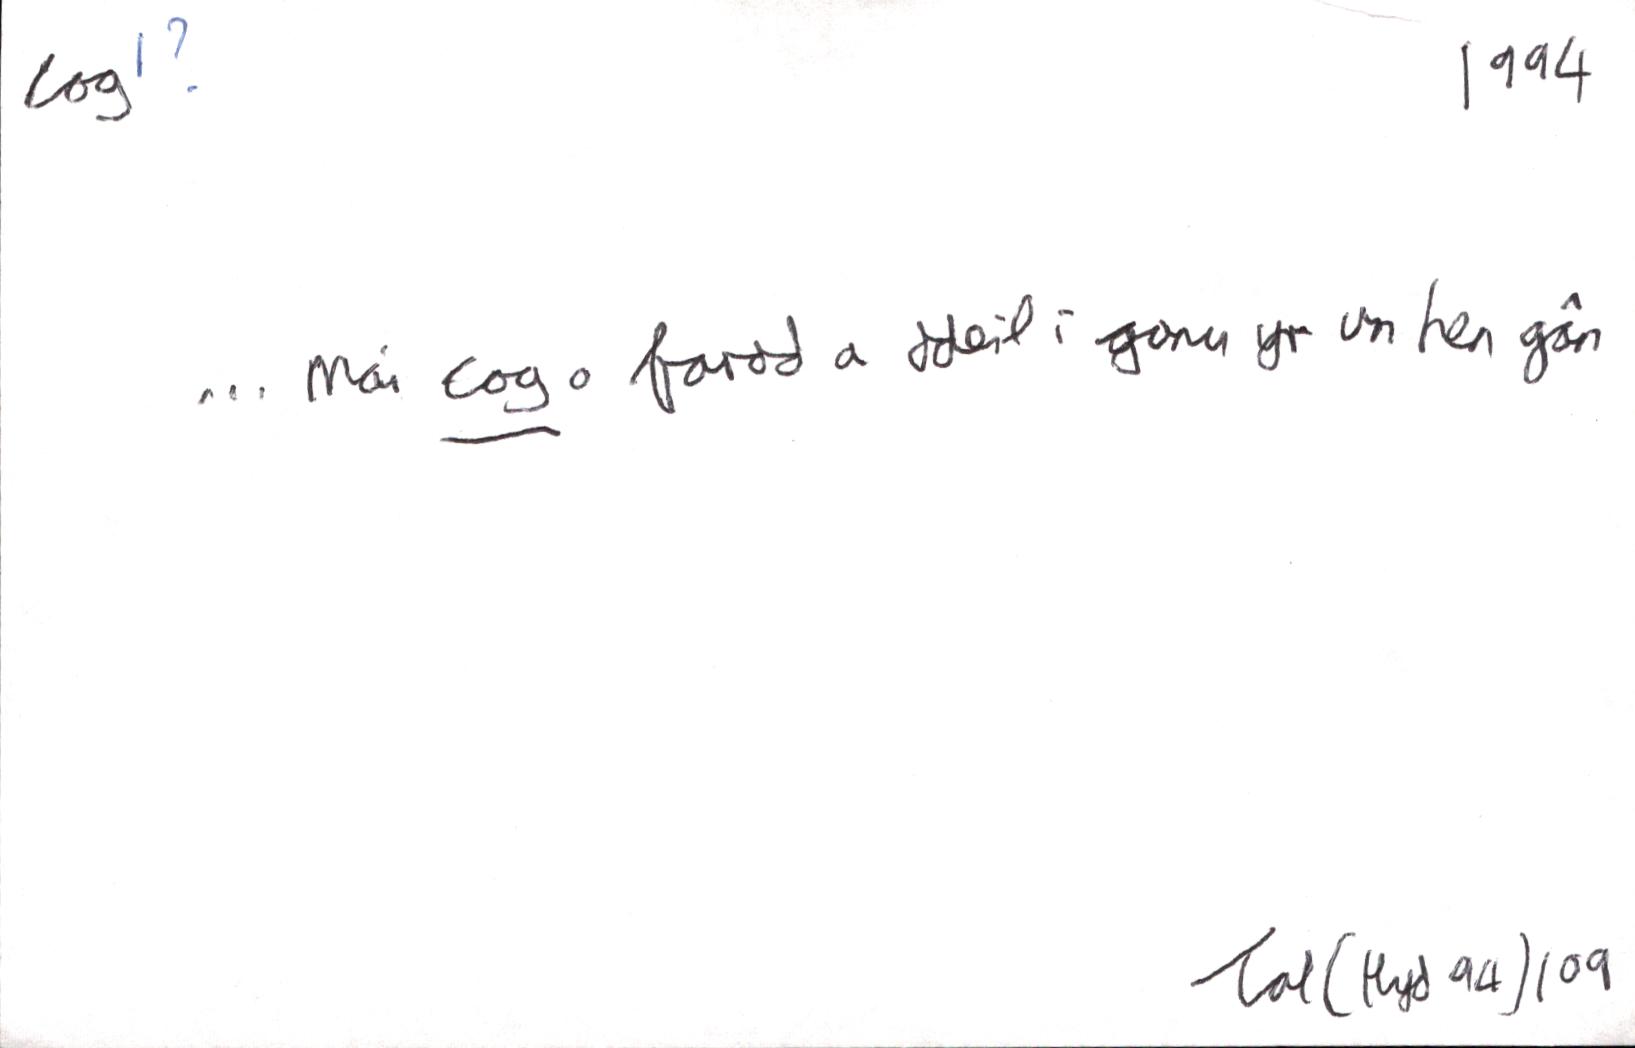 cog¹? 1994
... Mai cog o fardd a ddeil i ganu yr un hen gân
Tal (Hyd 94) 109